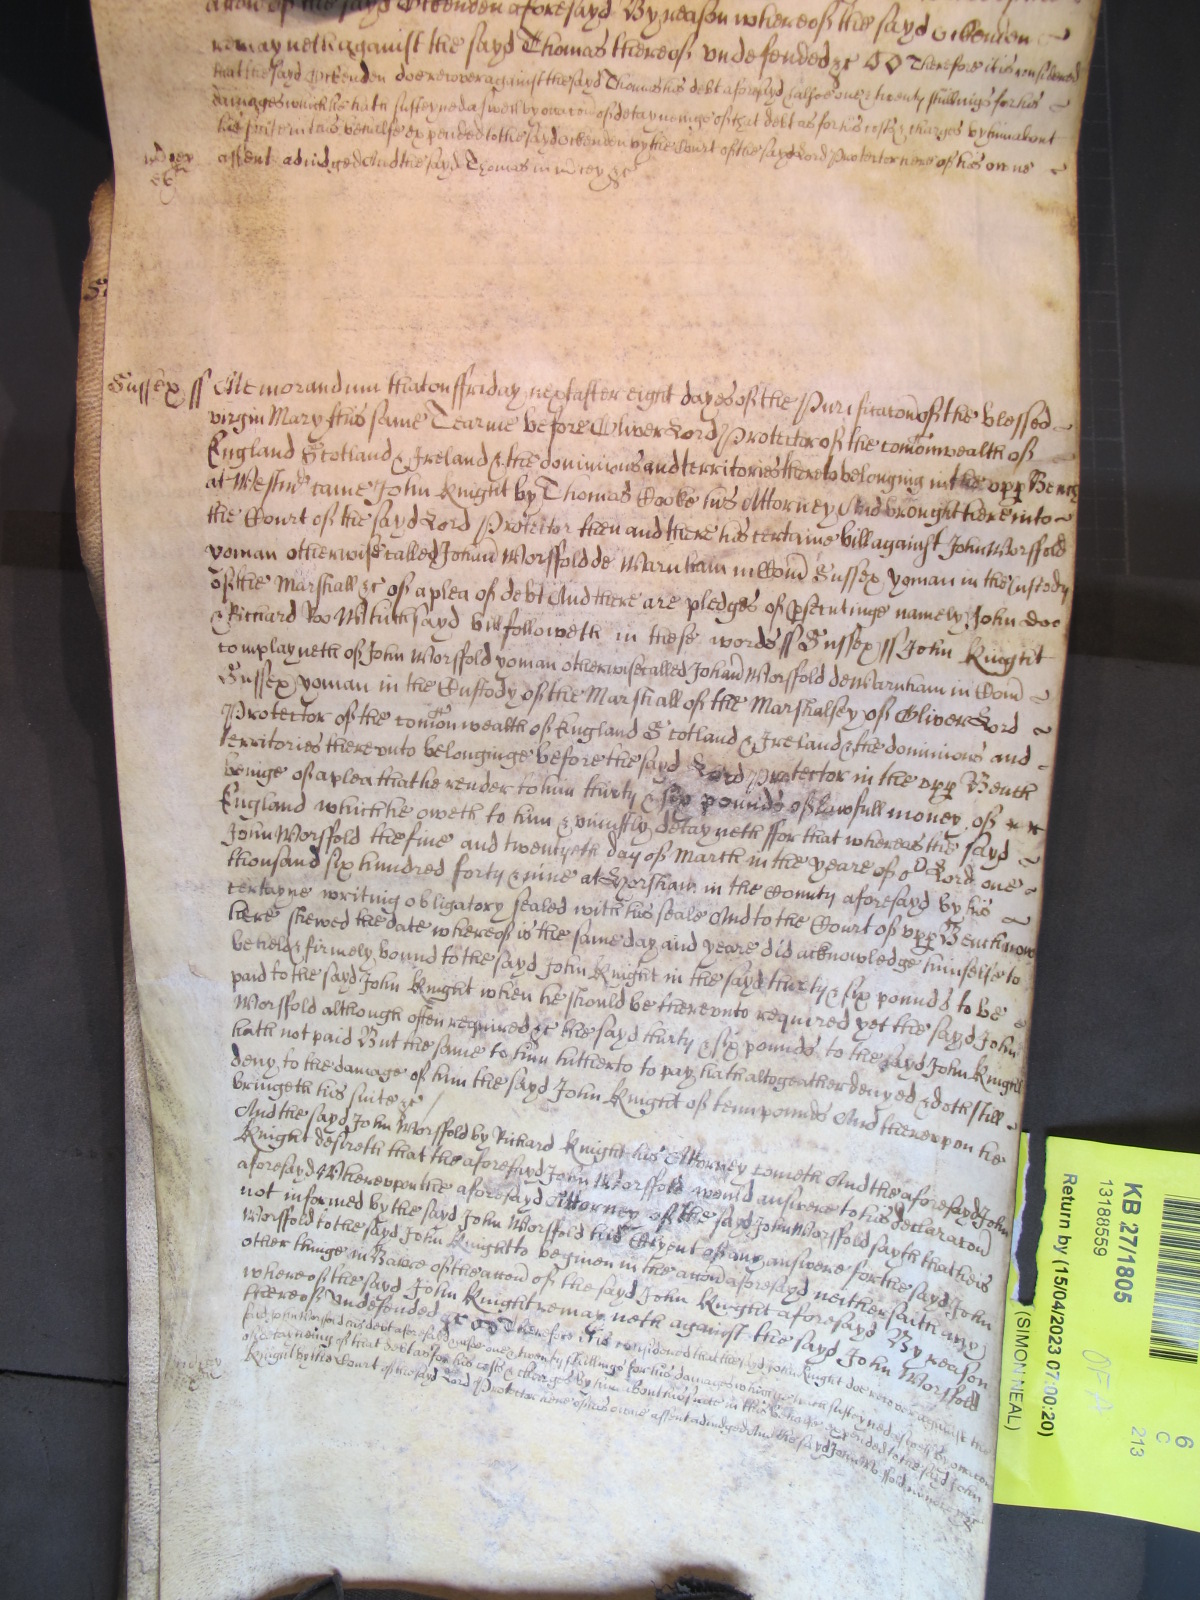 accon of the sayd Ockenden aforesayd By reason whereof the sayd Ockenden
remayneth against the sayd Thomas thereof undefended &c Therefore it is considered
that the sayd Ockenden doe recover against the sayd Thomas his debt aforesayd & alsoe one & twenty shillings for his
damages which he hath susteyned aswell by occacon of detayneinge of that debt as for his costs & charges by him about
his suite in this behalfe expended to the sayd Ockenden by the Court of the sayd Lord Protector here of his owne
assent adiudged And the sayd Thomas in mercy &c
mercy
Sussex ss Memorandum that on ffriday next after eight dayes of the Purificacon of the blessed
virgin Mary this same Tearme before Oliver Lord Protector of the comonwealth of
England Scotland & Ireland & the dominions and territories thereto belonging in the upp Bench
at Westmr came John Knight by Thomas Cooke his Attorney And brought here into
the Court of the sayd Lord Protector then and there his certaine bill against John Worsfold
yoman otherwise called Johan Worsfold de Warnham in Com Sussex yoman in the Custody
of the Marshall &c of a plea of debt And there are pledges of psecutinge namely John doe
& Richard Roo Which sayd bill followeth in these words ss Sussex ss John Knight
complayneth of John Worsfold yoman otherwise called Johan Worsfold de Warnham in Com
Sussex yoman in the Custody of the Marshall of the Marshalsey of Oliver Lord
Protector of the comonwealth of England Scotland & Ireland & the dominions and
territories thereunto belonginge before the sayd Lord Protector in the upp Bench
beinge of a plea that he render to him thirty & six pounds of lawfull money of
England which he oweth to him & uniustly detayneth ffor that whereas the sayd
John Worsfold the five and twentyeth day of March in the yeare of or Lord one
thousand six hundred forty & nine at Horsham in the County aforesayd by his
certayne writing obligatory sealed with his seale And to the Court of upp Bench now
here shewed the date whereof is the same day and yeare did acknowledge himselfe to
be held & firmely bound to the sayd John Knight in the sayd thirty & six pounds to be
paid to the sayd John Knight when he should be thereunto required yet the sayd John
Worsfold although often required &c the sayd thirty & six pounds to the sayd John Knight
hath not paid But the same to him hitherto to pay hath altogeather denyed & doth still
deny to the damage of him the sayd John Knight of tenn pounds And thereupon he
bringeth his suite &c
And the sayd John Worsfold by Richard Knight his Attorney cometh And the aforesayd John
Knight desireth that the aforesayd John Worsfold would answere to his declaracon
aforesayd Whereupon the aforesayd Attorney of the sayd John Worsfold sayth that he is
not informed by the sayd John Worsfold his Clyent of any answere for the sayd John
Worsfold to the sayd John Knight to be given in the accon aforesayd neither saith any
other thinge in Barre of the accon of the sayd John Knight aforesayd By reason
whereof the sayd John Knight remayneth against the sayd John Worsfold
thereof undefended &c Therefore it is considered that the sayd John Knight doe recover against the
said John Worsfold his debt aforesaid & alsoe one & twenty shillings for his damages which he hath susteyned aswell by occacon
of detayneing of that debt as for his costs & charges by him about his suite in this behalfe expended to the sayd John
Knight by the Court of the sayd Lord Protector here of his owne assent adiudged And the sayd John Worsfold in mercy &c
KB 27/1805
13188559
Return by (15/04/2023 07:00:20)
(SIMON NEAL)
6
C
213